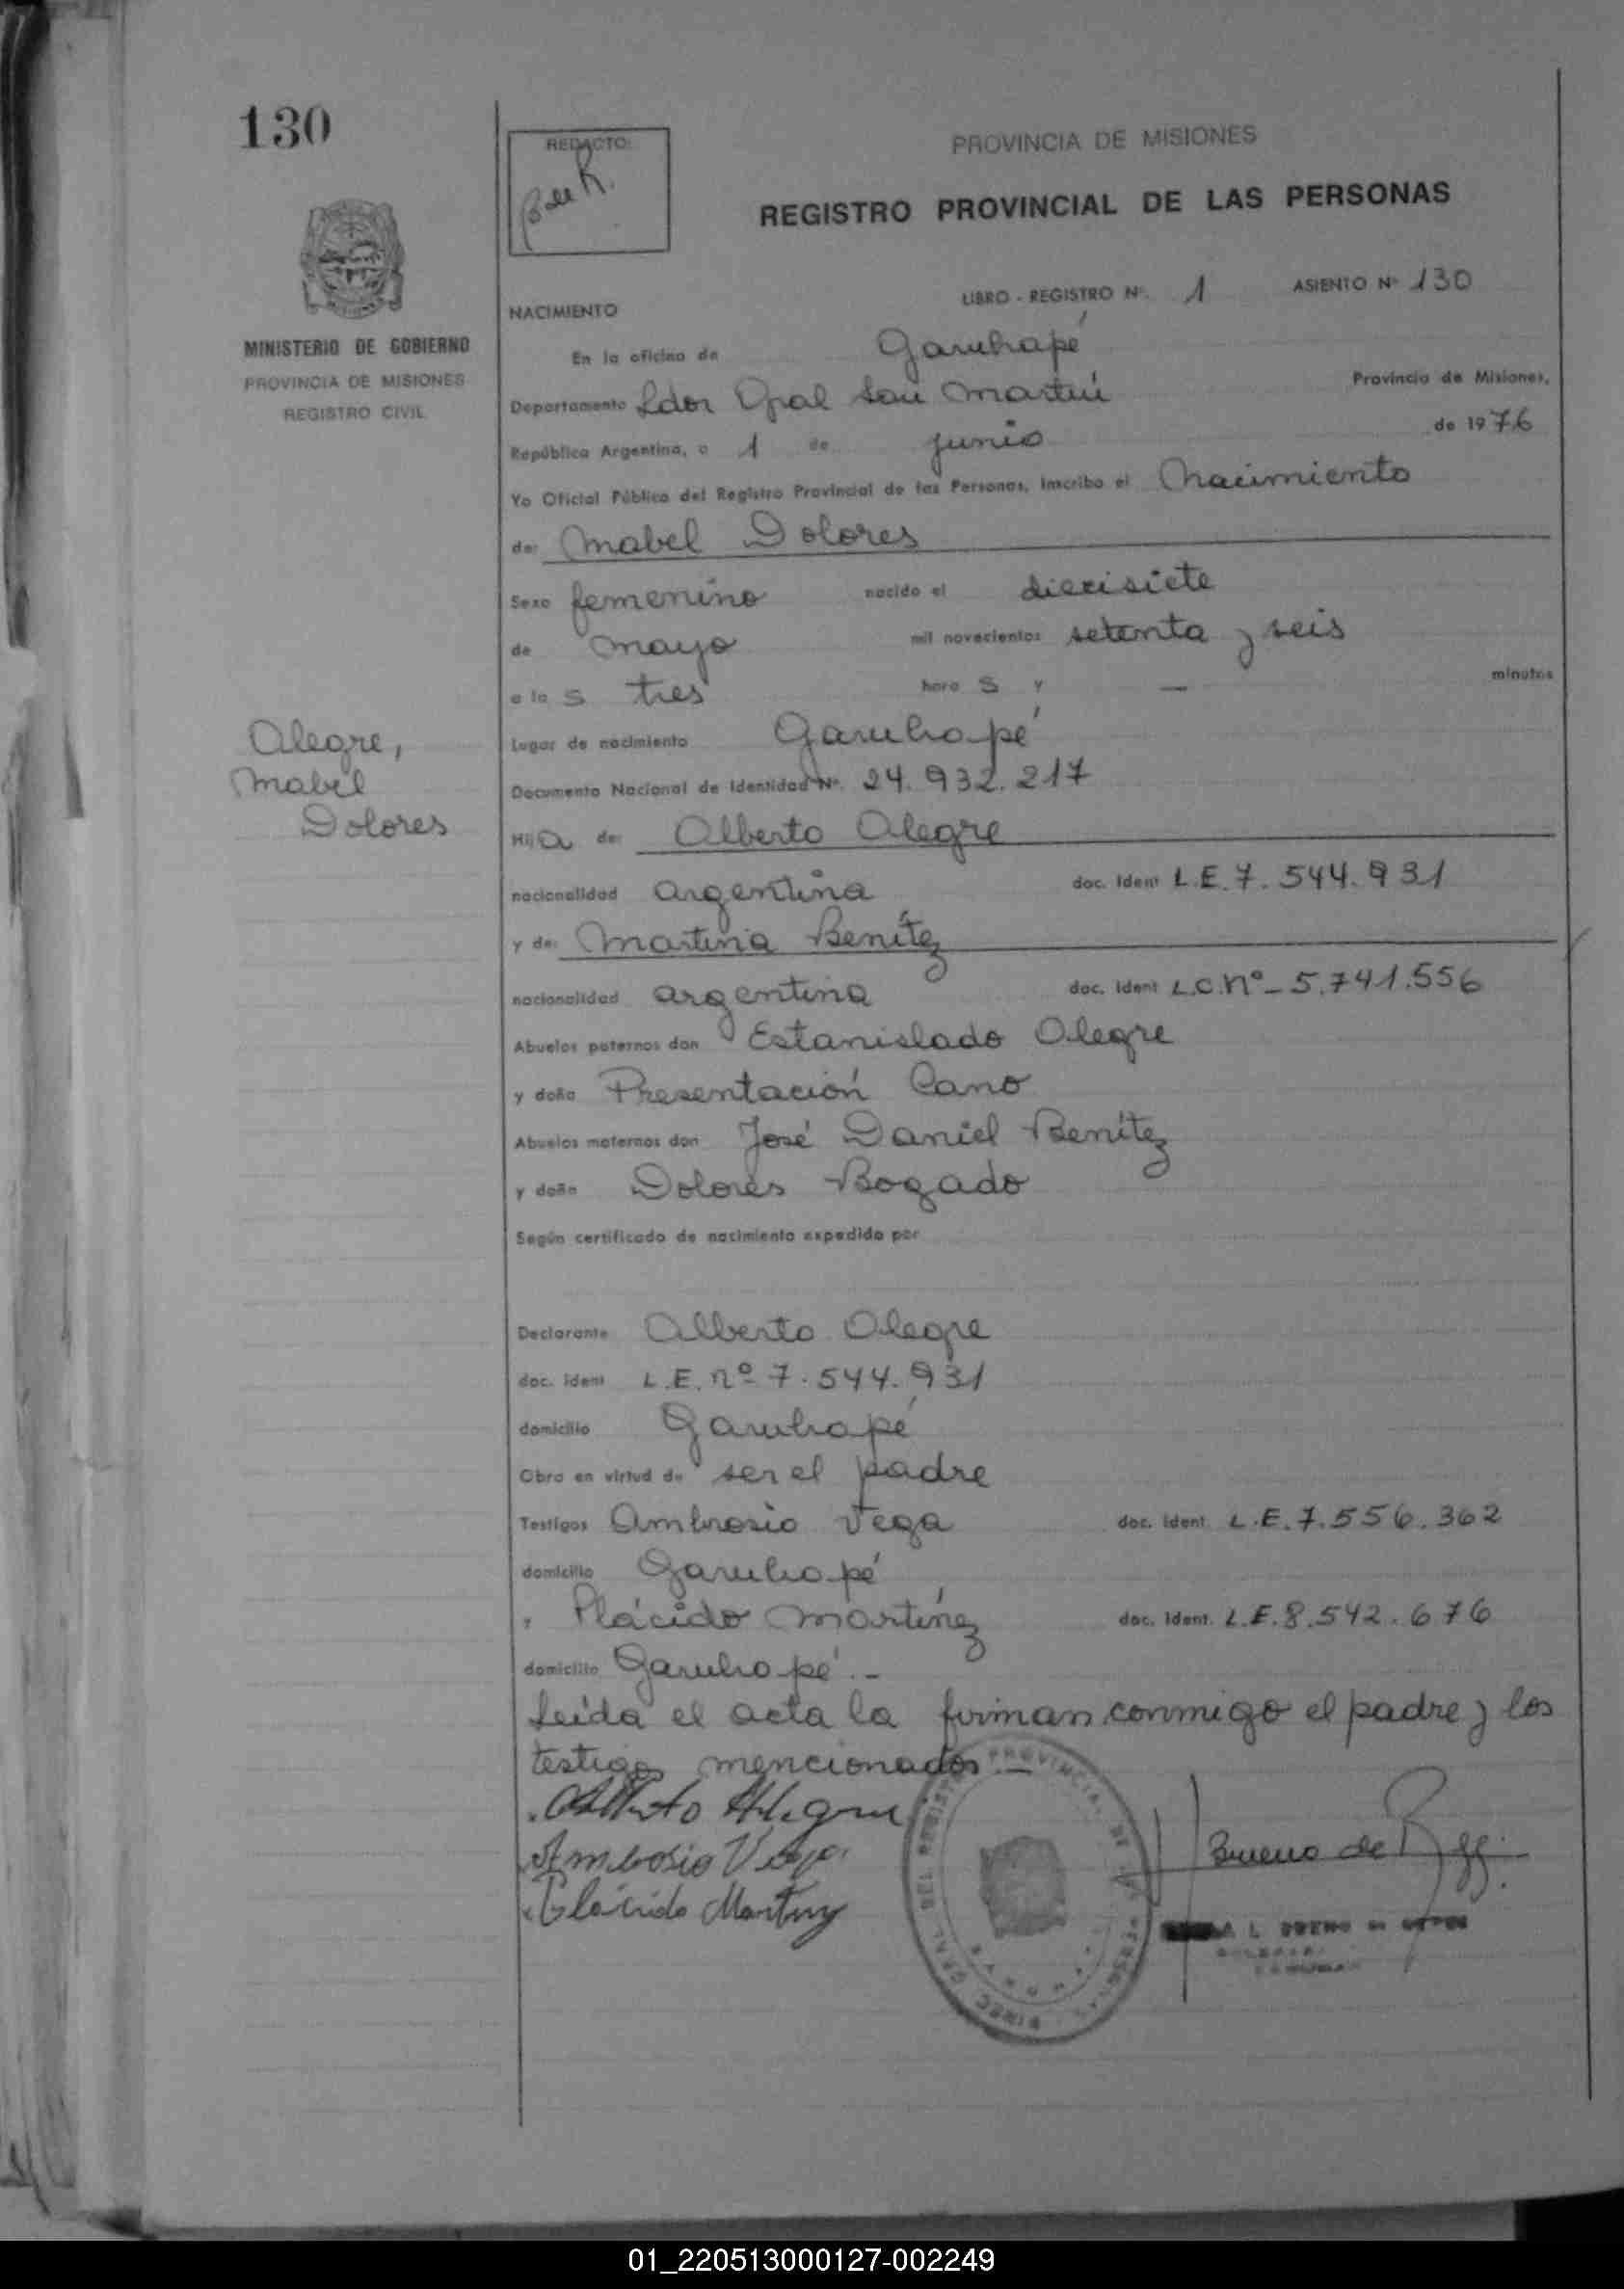 130
REDACTO:
B de R.
PROVINCIA DE MISIONES
REGISTRO PROVINCIAL DE LAS PERSONAS
MINISTERIO DE GOBIERNO
PROVINCIA DE MISIONES
REGISTRO CIVIL
NACIMIENTO LIBRO - REGISTRO Nº. 1 ASIENTO Nº 130
En la oficina de Garuhapé
Departamento Ldor Gral San Martín Provincia de Misiones,
República Argentina, a 1 de junio de 1976
Yo Oficial Público del Registro Provincial de las Personas, inscribo el Nacimiento
de: Mabel Dolores
Sexo femenino nacido el diecisiete
de mayo mil novecientos setenta y seis
a la s tres hora s y — minutos
Lugar de nacimiento Garuhapé
Alegre,
Mabel
Dolores
Documento Nacional de Identidad Nº. 24.932.217
Hij a de: Alberto Alegre
nacionalidad argentina doc. Ident L.E. 7.544.931
y de: Martina Benítez
nacionalidad argentina doc. Ident L.C. Nº- 5.741.556
Abuelos paternos don Estanislado Alegre
y doña Presentación Cano
Abuelos maternos don José Daniel Benítez
y doña Dolores Bogado
Según certificado de nacimiento expedido por
Declarante Alberto Alegre
doc. Ident L.E. nº 7.544.931
domicilio Garuhapé
Obra en virtud de ser el padre
Testigos Ambrosio Vega doc. Ident. L.E. 7.556.362
domicilio Garuhapé
y Plácido Martínez doc. Ident. L.E. 8.542.676
domicilio Garuhapé.-
Leída el acta la firman conmigo el padre y los
testigos mencionados.-
Alberto Alegre
Ambrosio Vega
Plácido Martinez
Bueno de
DIREC. GRAL. DEL REGISTRO PROVINCIAL DE LAS PERSONAS
01_220513000127-002249